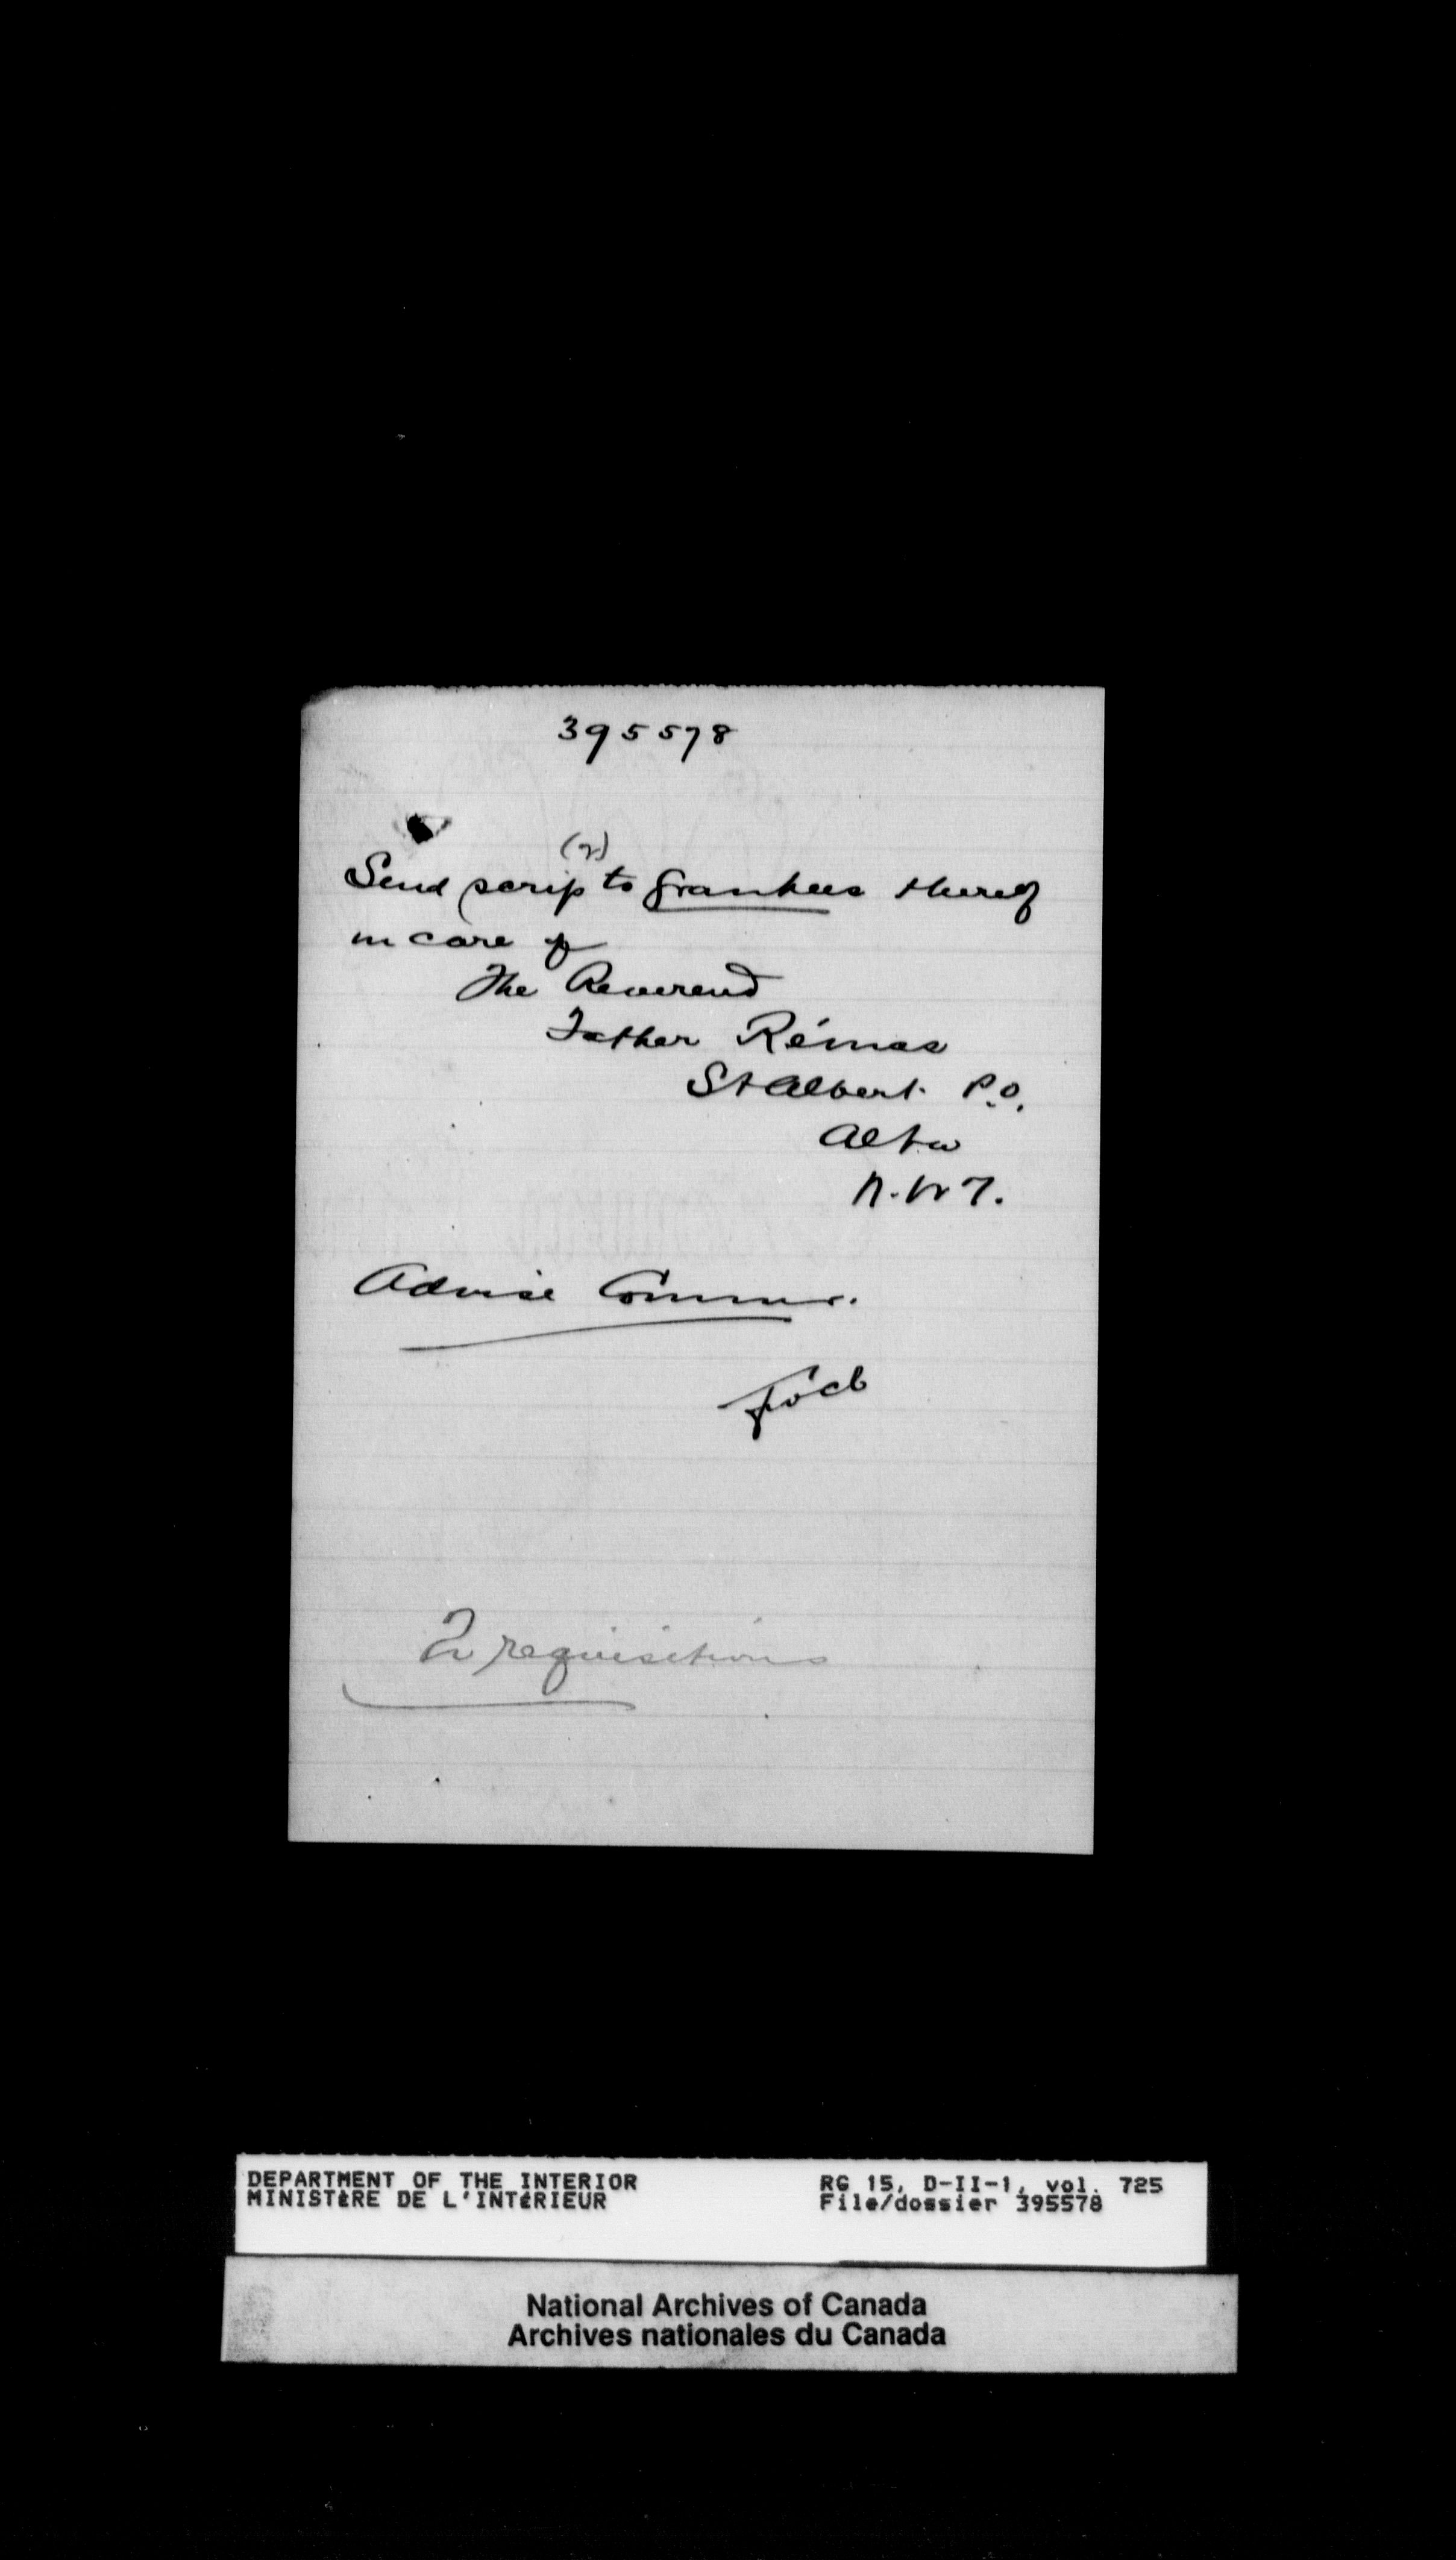 395578
(2)
Send scrip to grantees thereof
in care of
The Reverend
Father Rémas
St Albert P.O.
Alta
N.W.T.
Advise Commr.
2 requisitions
DEPARTMENT OF THE INTERIOR RG 15, D-II-1, vol. 725
MINISTÈRE DE L'INTÉRIEUR File/dossier 395578
National Archives of Canada
Archives nationales du Canada